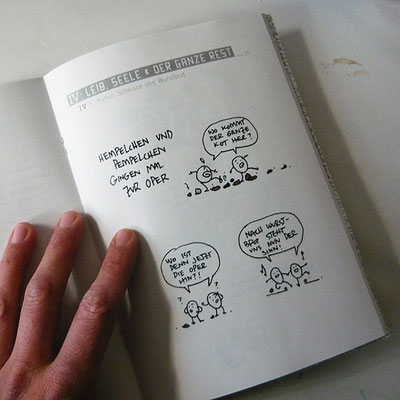 IV. LEIB, SEELE & DER GANZE REST
IV 1. Kultur, Scheisse und Wurstbrot
HEMPELCHEN UND
PEMPELCHEN
GINGEN MAL
ZUR OPER
WO KOMMT
DER GANZE
KOT HER?
WO IST
DENN JETZT
DIE OPER
HIN?!
?
?
NACH WURST-
BROT STEHT
UNS NUN DER
SINN!